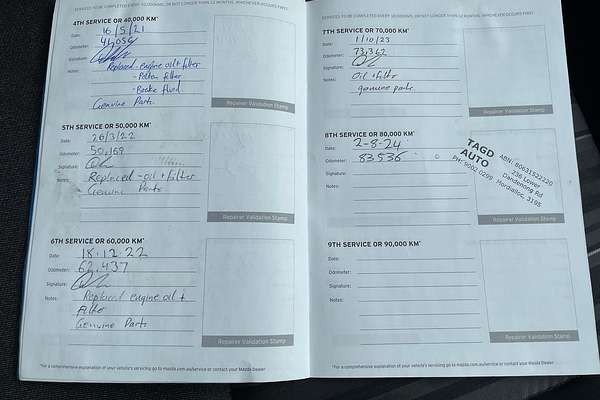 SERVICES TO BE COMPLETED EVERY 10,000KM, OR NOT LONGER THAN 12 MONTHS, WHICHEVER OCCURS FIRST.
4TH SERVICE OR 40,000 KM*
Date: 16/5/21
Odometer:
Signature:
Notes: Replaced engine oil + filter
- Pollen filter
- Brake fluid
Genuine Parts
Repairer Validation Stamp
5TH SERVICE OR 50,000 KM*
Date: 26/3/22
Odometer: 50,169
Signature:
Notes: Replaced - oil + filter
Genuine Parts
Repairer Validation Stamp
6TH SERVICE OR 60,000 KM*
Date: 18.12.22
Odometer: 62,437
Signature:
Notes: Replaced engine oil +
filter
Genuine Parts
Repairer Validation Stamp
*For a comprehensive explanation of your vehicle's servicing go to mazda.com.au/service or contact your Mazda Dealer
SERVICES TO BE COMPLETED EVERY 10,000KM, OR NOT LONGER THAN 12 MONTHS, WHICHEVER OCCURS FIRST.
7TH SERVICE OR 70,000 KM*
Date: 1/10/23
Odometer: 73,342
Signature:
Notes: Oil + filter
genuine parts
Repairer Validation Stamp
8TH SERVICE OR 80,000 KM*
Date: 2-8-24
Odometer: 83536
Signature:
Notes:
TAGD
AUTO
ABN: 60631522220
236 Lower
Dandenong Rd
Mordialloc, 3195
PH: 9002 0299
Repairer Validation Stamp
9TH SERVICE OR 90,000 KM*
Date:
Odometer:
Signature:
Notes:
Repairer Validation Stamp
*For a comprehensive explanation of your vehicle's servicing go to mazda.com.au/service or contact your Mazda Dealer